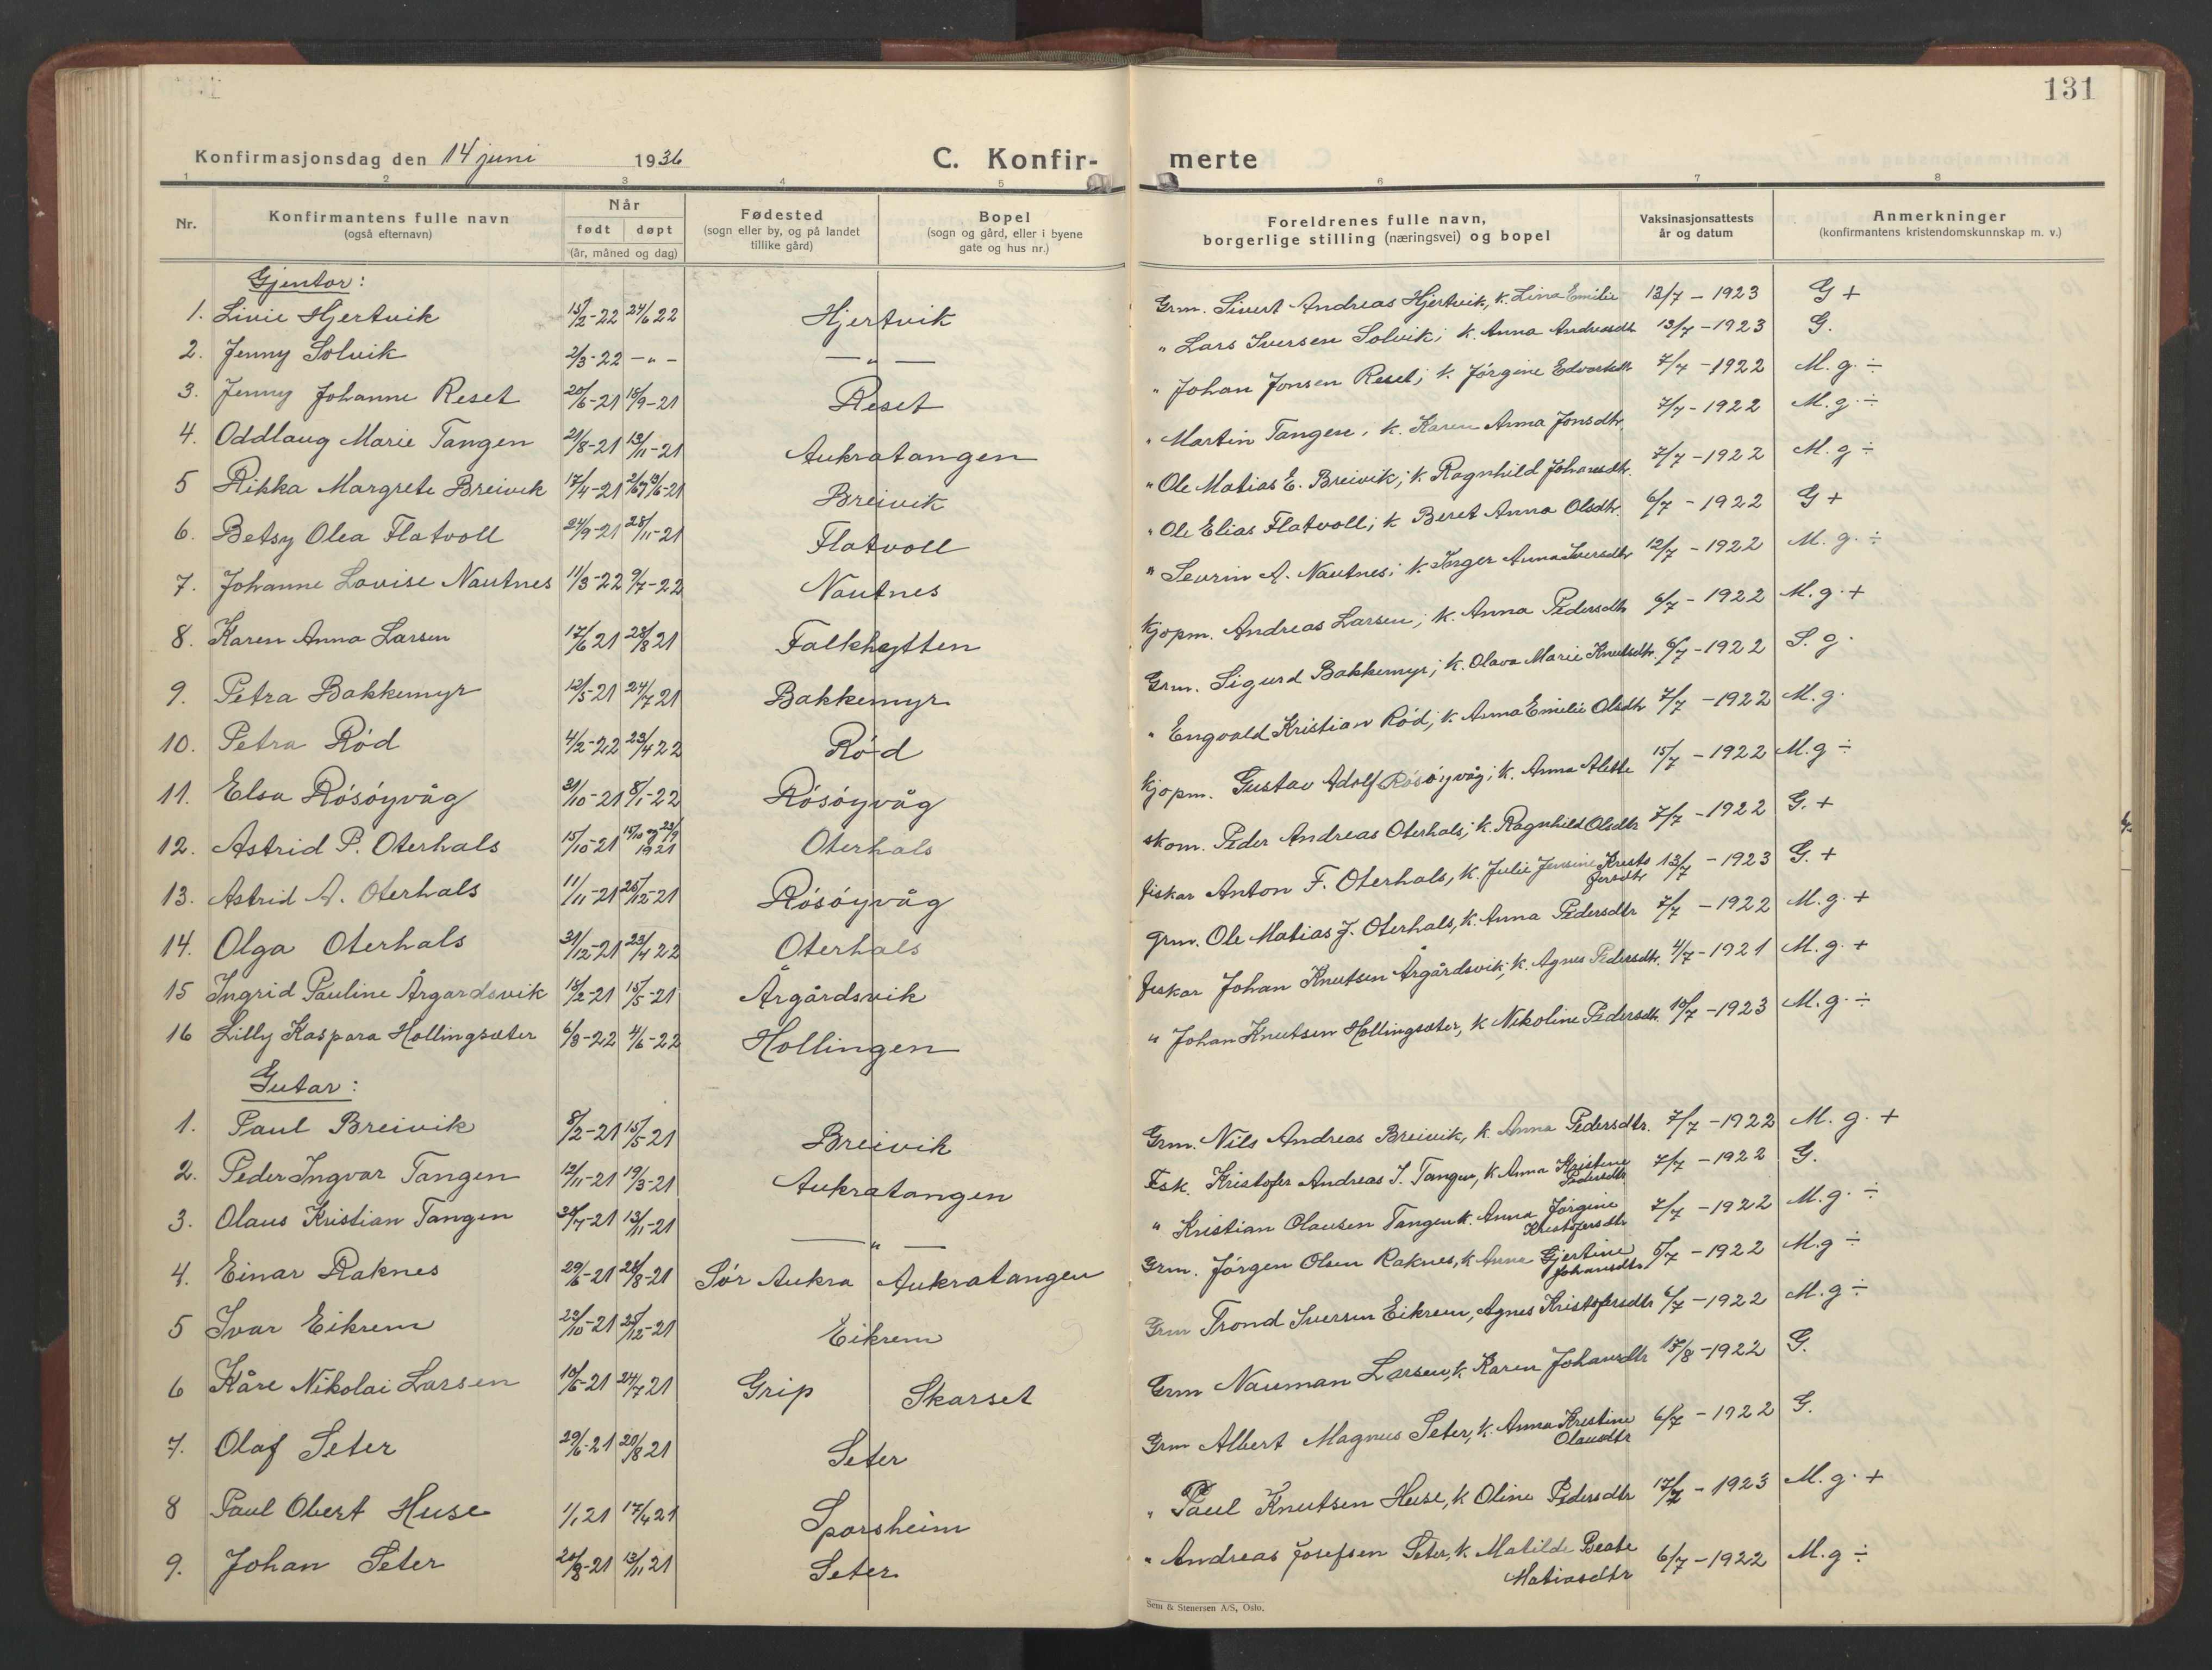 131
Konfirmasjonsdag den 14 juni 1936 C. Konfir- merte
1 2 3 4 5 6 7 8
Nr. Konfirmantens fulle navn (også efternavn) Når født døpt (år, måned og dag) Fødested (sogn eller by, og på landet tillike gård) Bopel (sogn og gård, eller i byene gate og hus nr.) Foreldrenes fulle navn, borgerlige stilling (næringsvei) og bopel Vaksinasjonsattests år og datum Anmerkninger (konfirmantens kristendomskunnskap m. v.)
Gjentor:
1. Livie Hjertvik 15/2-22 24/6 22 Hjertvik Grm. Sivert Andreas Hjertvik, k. Lina Emilie 13/7 - 1923 G +
2. Jenny Solvik 2/3-22 - „ - — „ — " Lars Iversen Solvik; k. Anna Andreasdtr 13/7 - 1923 G.
3. Jenny Johanne Reset 20/6-21 18/9-21 Reset " Johan Jonsen Reset; k. Jørgine Edvardsdtr 7/7 - 1922 M. g. ÷
4. Oddlaug Marie Tangen 21/8-21 13/11-21 Aukratangen " Martin Tangen, k. Karen Anna Jonsdtr. 7/7 - 1922 M. g. ÷
5 Rikka Margrete Breivik 17/4-21 Breivik " Ole Matias E. Breivik; k. Ragnhild Johansdtr. 7/7 - 1922 M. g ÷
6. Betsy Olea Flatvoll 24/9-21 28/11-21 Flatvoll " Ole Elias Flatvoll; k Beret Anna Olsdtr. 6/7 - 1922 G +
7. Johanne Lovise Nautnes 11/3-22 9/7-22 Nautnes " Sevrin A. Nautnes; k. Inger Anna Iversdtr 12/7 - 1922 M. g. ÷
8. Karen Anna Larsen 17/6 21 28/8 21 Falkhytten Kjøpm. Andreas Larsen; k. Anna Pedersdtr 6/7 - 1922 M. g. +
9. Petra Bakkemyr 12/5-21 24/7 21 Bakkemyr Grm. Sigurd Bakkemyr; k. Olava Marie Knutsdtr. 6/7 - 1922 S. g.
10. Petra Rød 4/2-22 23/4 22 Rød " Engvald Kristian Rød; k. Anna Emilie Olsdtr 7/7 - 1922 M. g.
11. Elsa Røsøyvåg 31/10-21 8/1-22 Røsøyvåg Kjøpm. Gustav Adolf Røsøyvåg; k. Anna Alette 15/7 - 1922 M. g ÷
12. Astrid P. Oterhals 15/10-21 1921 Oterhals skom. Peder Andreas Oterhals; k. Ragnhild Olsdtr 7/7 - 1922 G. +
13. Astrid A. Oterhals 11/11-21 26/12-21 Røsøyvåg fiskar Anton F. Oterhals, k. Julie Jensine Kristofersdtr 13/7 - 1923 G. +
14. Olga Oterhals 31/12-21 23/4 22 Oterhals grm. Ole Matias J. Oterhals, k. Anna Pedersdtr 7/7 - 1922 M. g. +
15 Ingrid Pauline Årgardsvik 18/2-21 15/5-21 Årgårdsvik fiskar Johan Knutsen Årgårdsvik, k. Agnes Pedersdtr. 4/7 - 1921 M. g. +
16 Lilly Kaspara Hollingsæter 6/3-22 4/6-22 Hollingen " Johan Knutsen Hollingsæter, k Nikoline Pedersdtr. 10/7 - 1923 M. g. ÷
Gutar:
1. Paul Breivik 8/2-21 15/5 21 Breivik Grm. Nils Andreas Breivik, k. Anna Pedersdtr. 7/7 - 1922 M. g. +
2. Peder Ingvar Tangen 12/11-21 19/3-21 Aukratangen Fsk. Kristofer Andreas I. Tangen, k Anna Kristine Pedersdtr 7/7 - 1922 G.
3. Olaus Kristian Tangen 30/7-21 13/11-21 — „ — " Kristian Olausen Tangen k. Anna Jørgine Kristofersdtr 7/7 - 1922 M. g. ÷
4. Einar Raknes 29/6-21 28/8-21 Sør Aukra Aukratangen Grm. Jørgen Olsen Raknes, k Anna Gjertine Johansdtr 5/7 - 1922 M. g ÷
5 Ivar Eikrem 23/10-21 25/12-21 Eikrem Grm Trond Iversen Eikrem, Agnes Kristofersdtr 6/7 - 1922 M. g ÷
6 Kåre Nikolai Larsen 10/6-21 24/7 21 Grip Skarset Grm Nauman Larsen, k Karen Johansdtr 17/8 - 1922 G.
7. Olaf Seter 29/6-21 20/8 21 Seter Grm Albert Magnus Seter, k. Anna Kristine Olausdtr 6/7 - 1922 G.
8 Paul Obert Huse 1/1 21 17/4 21 Sporsheim " Paul Knutsen Huse, k Oline Pedersdtr 17/7 - 1923 M. g. +
9. Johan Seter 20/8-21 13/11 21 Seter " Andreas Josefsen Seter, k. Matilde Beate Matiasdtr 6/7 - 1922 M. g ÷
Sem & Stenersen A/S, Oslo.